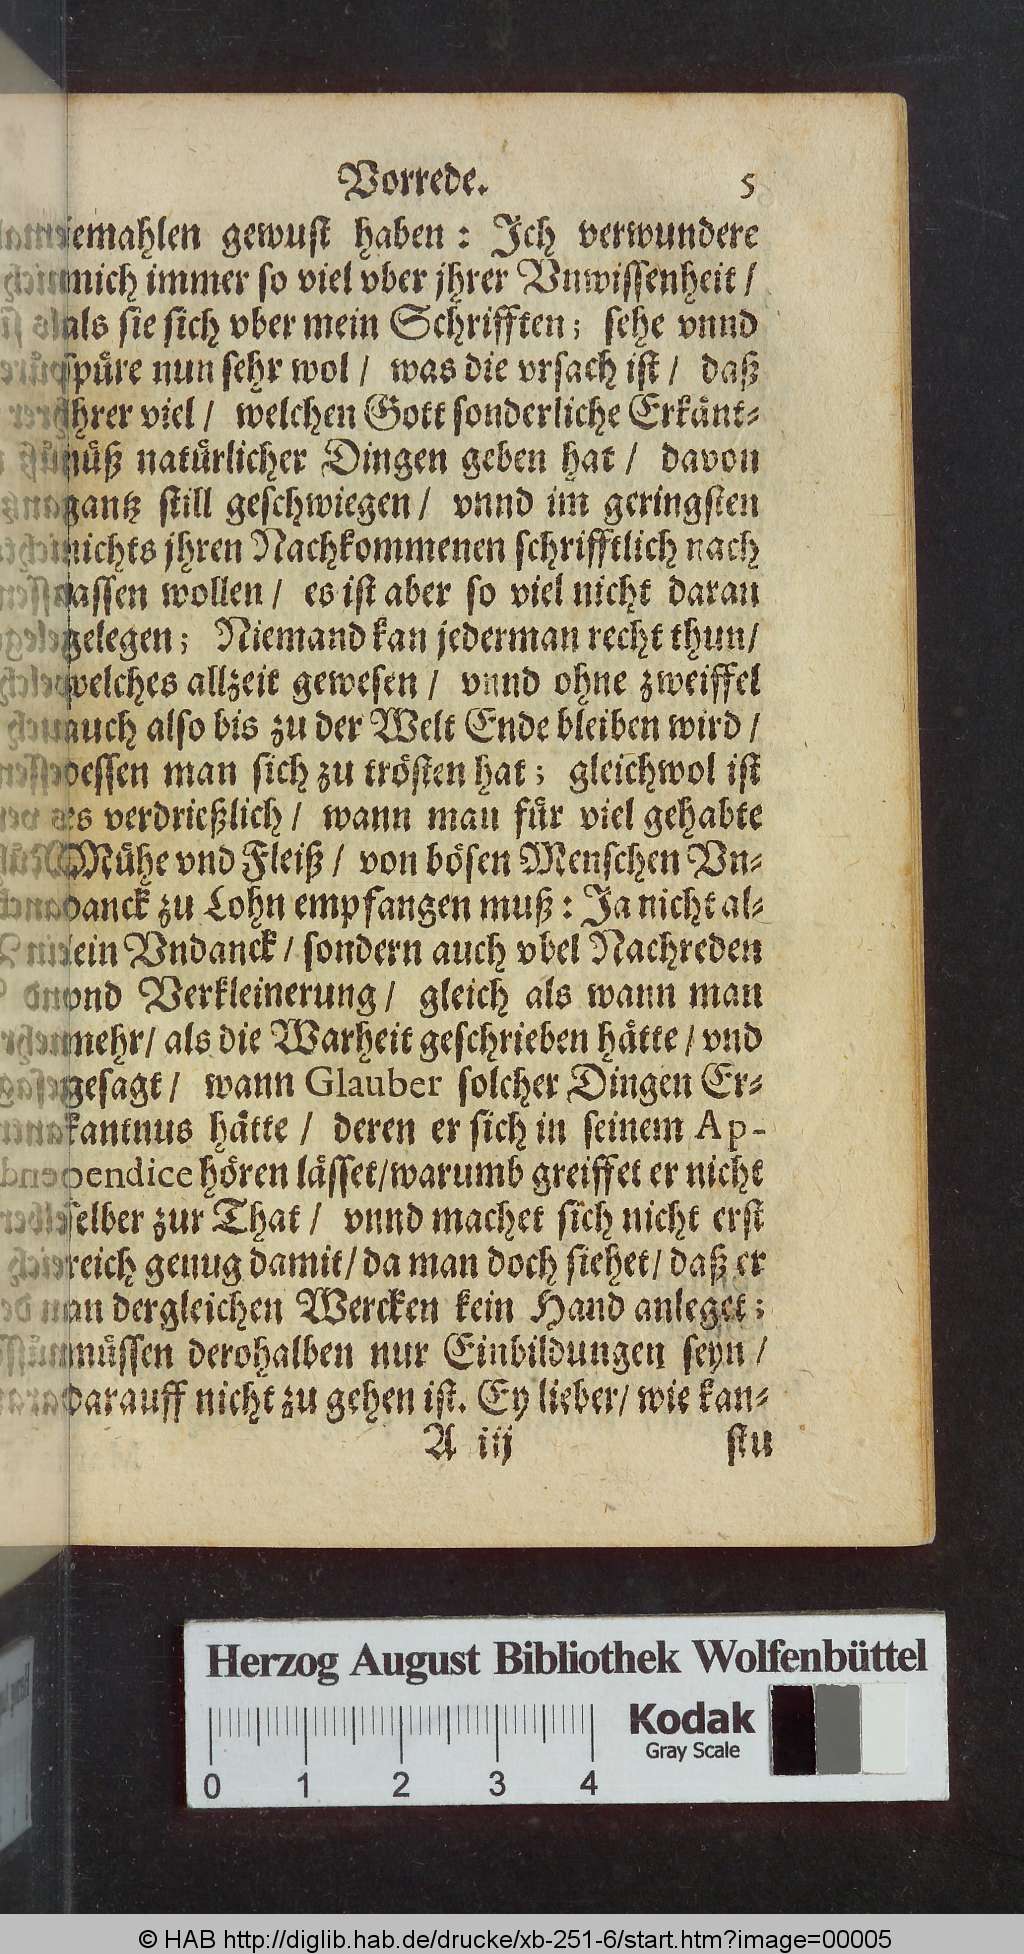 Vorrede. 5
jemahlen gewust haben: Jch verwundere
mich immer so viel vber jhrer Vnwissenheit /
als sie sich vber mein Schrifften; sehe vnnd
spüre nun sehr wol / was die vrsach ist / daß
jhrer viel / welchen Gott sonderliche Erkänt-
nüß natürlicher Dingen geben hat / davon
gantz still geschwiegen / vnnd im geringsten
nichts jhren Nachkommenen schrifftlich nach
lassen wollen / es ist aber so viel nicht daran
gelegen; Niemand kan jederman recht thun /
welches allzeit gewesen / vnnd ohne zweiffel
auch also bis zu der Welt Ende bleiben wird /
dessen man sich zu trösten hat; gleichwol ist
es verdrießlich / wann man für viel gehabte
Mühe vnd Fleiß / von bösen Menschen Vn-
danck zu Lohn empfangen muß: Ja nicht al-
lein Vndanck / sondern auch vbel Nachreden
vnd Verkleinerung / gleich als wann man
mehr / als die Warheit geschrieben hätte / vnd
gesagt / wann Glauber solcher Dingen Er-
kantnus hätte / deren er sich in seinem Ap-
pendice hören lässet / warumb greiffet er nicht
selber zur That / vnnd machet sich nicht erst
reich genug damit / da man doch siehet / daß er
an dergleichen Wercken kein Hand anleget;
müssen derohalben nur Einbildungen seyn /
darauff nicht zu gehen ist. Ey lieber / wie kan-
A iij stu
Herzog August Bibliothek Wolfenbüttel
Kodak
Gray Scale
0 1 2 3 4
© HAB http://diglib.hab.de/drucke/xb-251-6/start.htm?image=00005